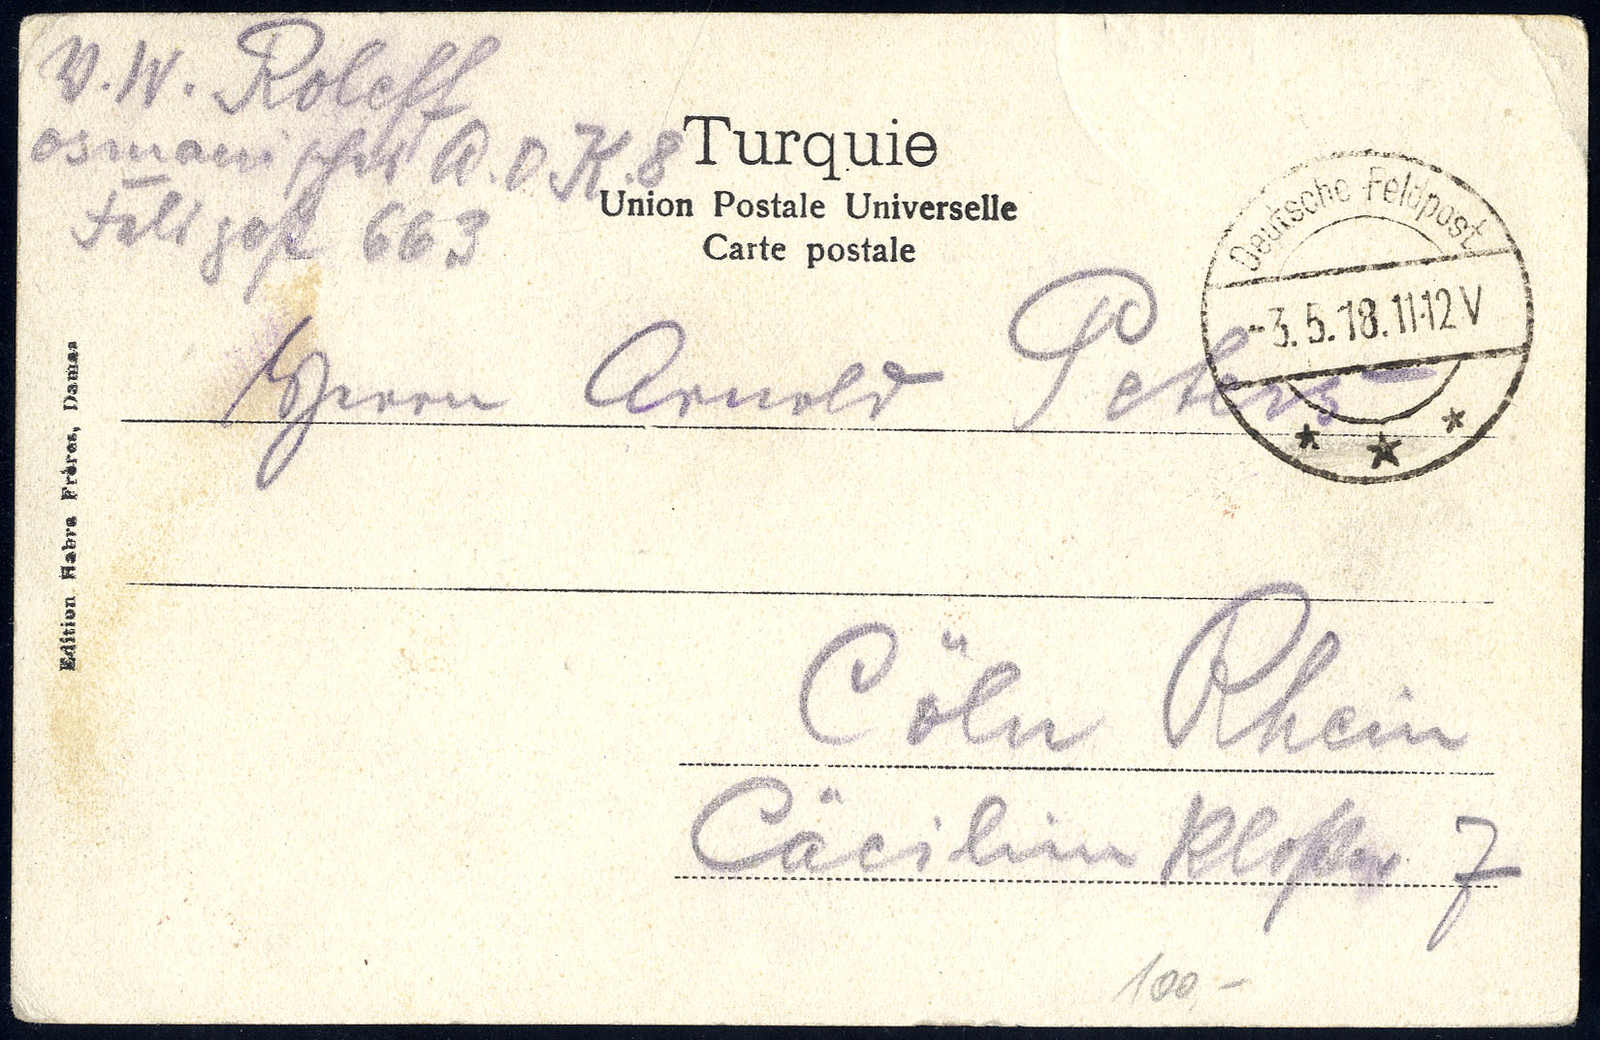 V. W. Roleff
osmanisches A.O.K. 8
Feldpost 663
Turquie
Union Postale Universelle
Carte postale
Deutsche Feldpost
-3.5.18.11-12V
Herrn Arnold Peters
Edition Habra Frères, Damas
Cöln Rhein
Cäcilien Kloster 7
100,-